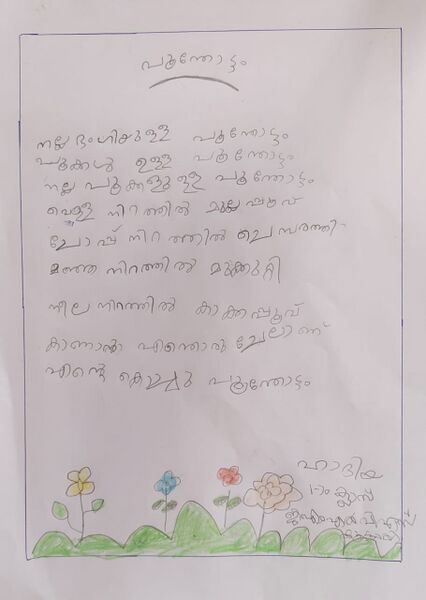 പൂന്തോട്ടം
നല്ല ഭംഗിയുള്ള പൂന്തോട്ടം
പൂക്കൾ ഉള്ള പൂന്തോട്ടം
നല്ല പൂക്കളുള്ള പൂന്തോട്ടം
വെള്ള നിറത്തിൽ മുല്ലപ്പൂവ്
റോഷ് നിറത്തിൽ ചെമ്പരത്തി
മഞ്ഞ നിറത്തിൽ മുക്കുറ്റി
നീല നിറത്തിൽ കാക്കപ്പൂവ്
കാണാൻ എന്തൊരു ചേലാണ്
എന്റെ കൊച്ചു പൂന്തോട്ടം
ഹാദിയ
1-ാം ക്ലാസ്